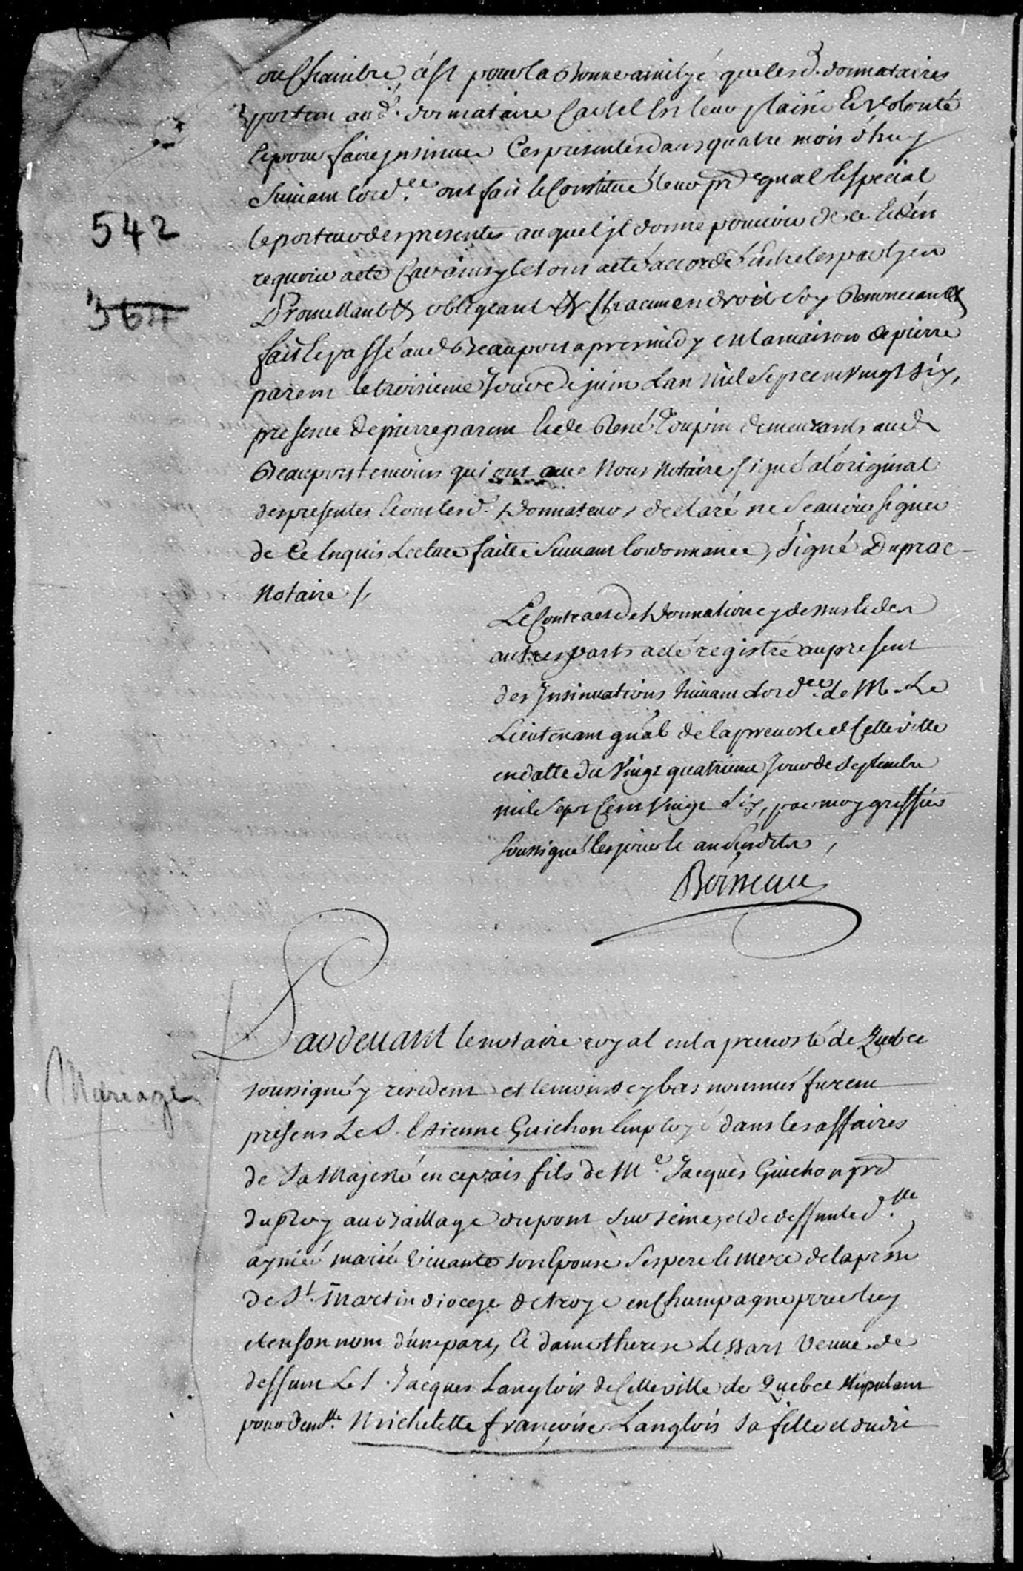 ou Chambre, c'est pour la bonne amityé que lesd. donnataires
portent aud. donnataire Car tel est leur plaisir et volonté
et pour faire insinuer Ces presentes dans quatre mois d'huy
Suivant l'ord.ce ont fait et Constitué leur pr gnal et special
le porteur des presentes auquel jl donne pouvoir de ce et d'en
requerir acte Car ainsy et sont acte accordé entre les partyes
Promettant & obligeant & Chacun en droit soy Renonceant &
fait et passé aud Beauport apres midy en la maison de pierre
parent le troisieme Jour de juin L'an mil Sept cent vingt six,
presence de pierre parent et de René Toupin demeurants aud
Beauport temoins qui ont avec Nous Notaire signé a l'original
des presentes et ont lesd. donnateurs declaré ne Scavoir signer
de Ce Enquis Lecture faitte Suivant l'ordonnance, Signé Duprac
Notaire /.
542
364
Le Contract de donnation cy dessus et des
autres parts a eté registré au present
des Jnsinuations suivant l'ord.ce de M. Le
Lieutenant gnal de la prevosté de Cette ville
en datte du vingt quatrieme Jour de Septembre
mil Sept Cent vingt six, par moy greffier
soussigné les jour et an Susdits,
Boisseau
Mariage
Pardevant le notaire royal en la prevosté de Quebec
soussigné y resident et temoins cy bas nommés furent
presens Le S. Etienne Guichon Employé dans les affaires
de Sa Majesté en ce pais fils de M.e Jacques Guichon pr
du Roy au baillage du pont sur seine, et de deffunte d.lle
aymée marie vivante son Epouse ses pere et mere de la par.sse
de St. Martin dioceze de troye en Champagne pour luy
et en son nom d'une part, Et dame therese Lessart veuve de
deffunt Le S. Jacques Langlois de Cette ville de Quebec stipulant
pour dem.lle Michelette françoise Langlois sa fille et dudit